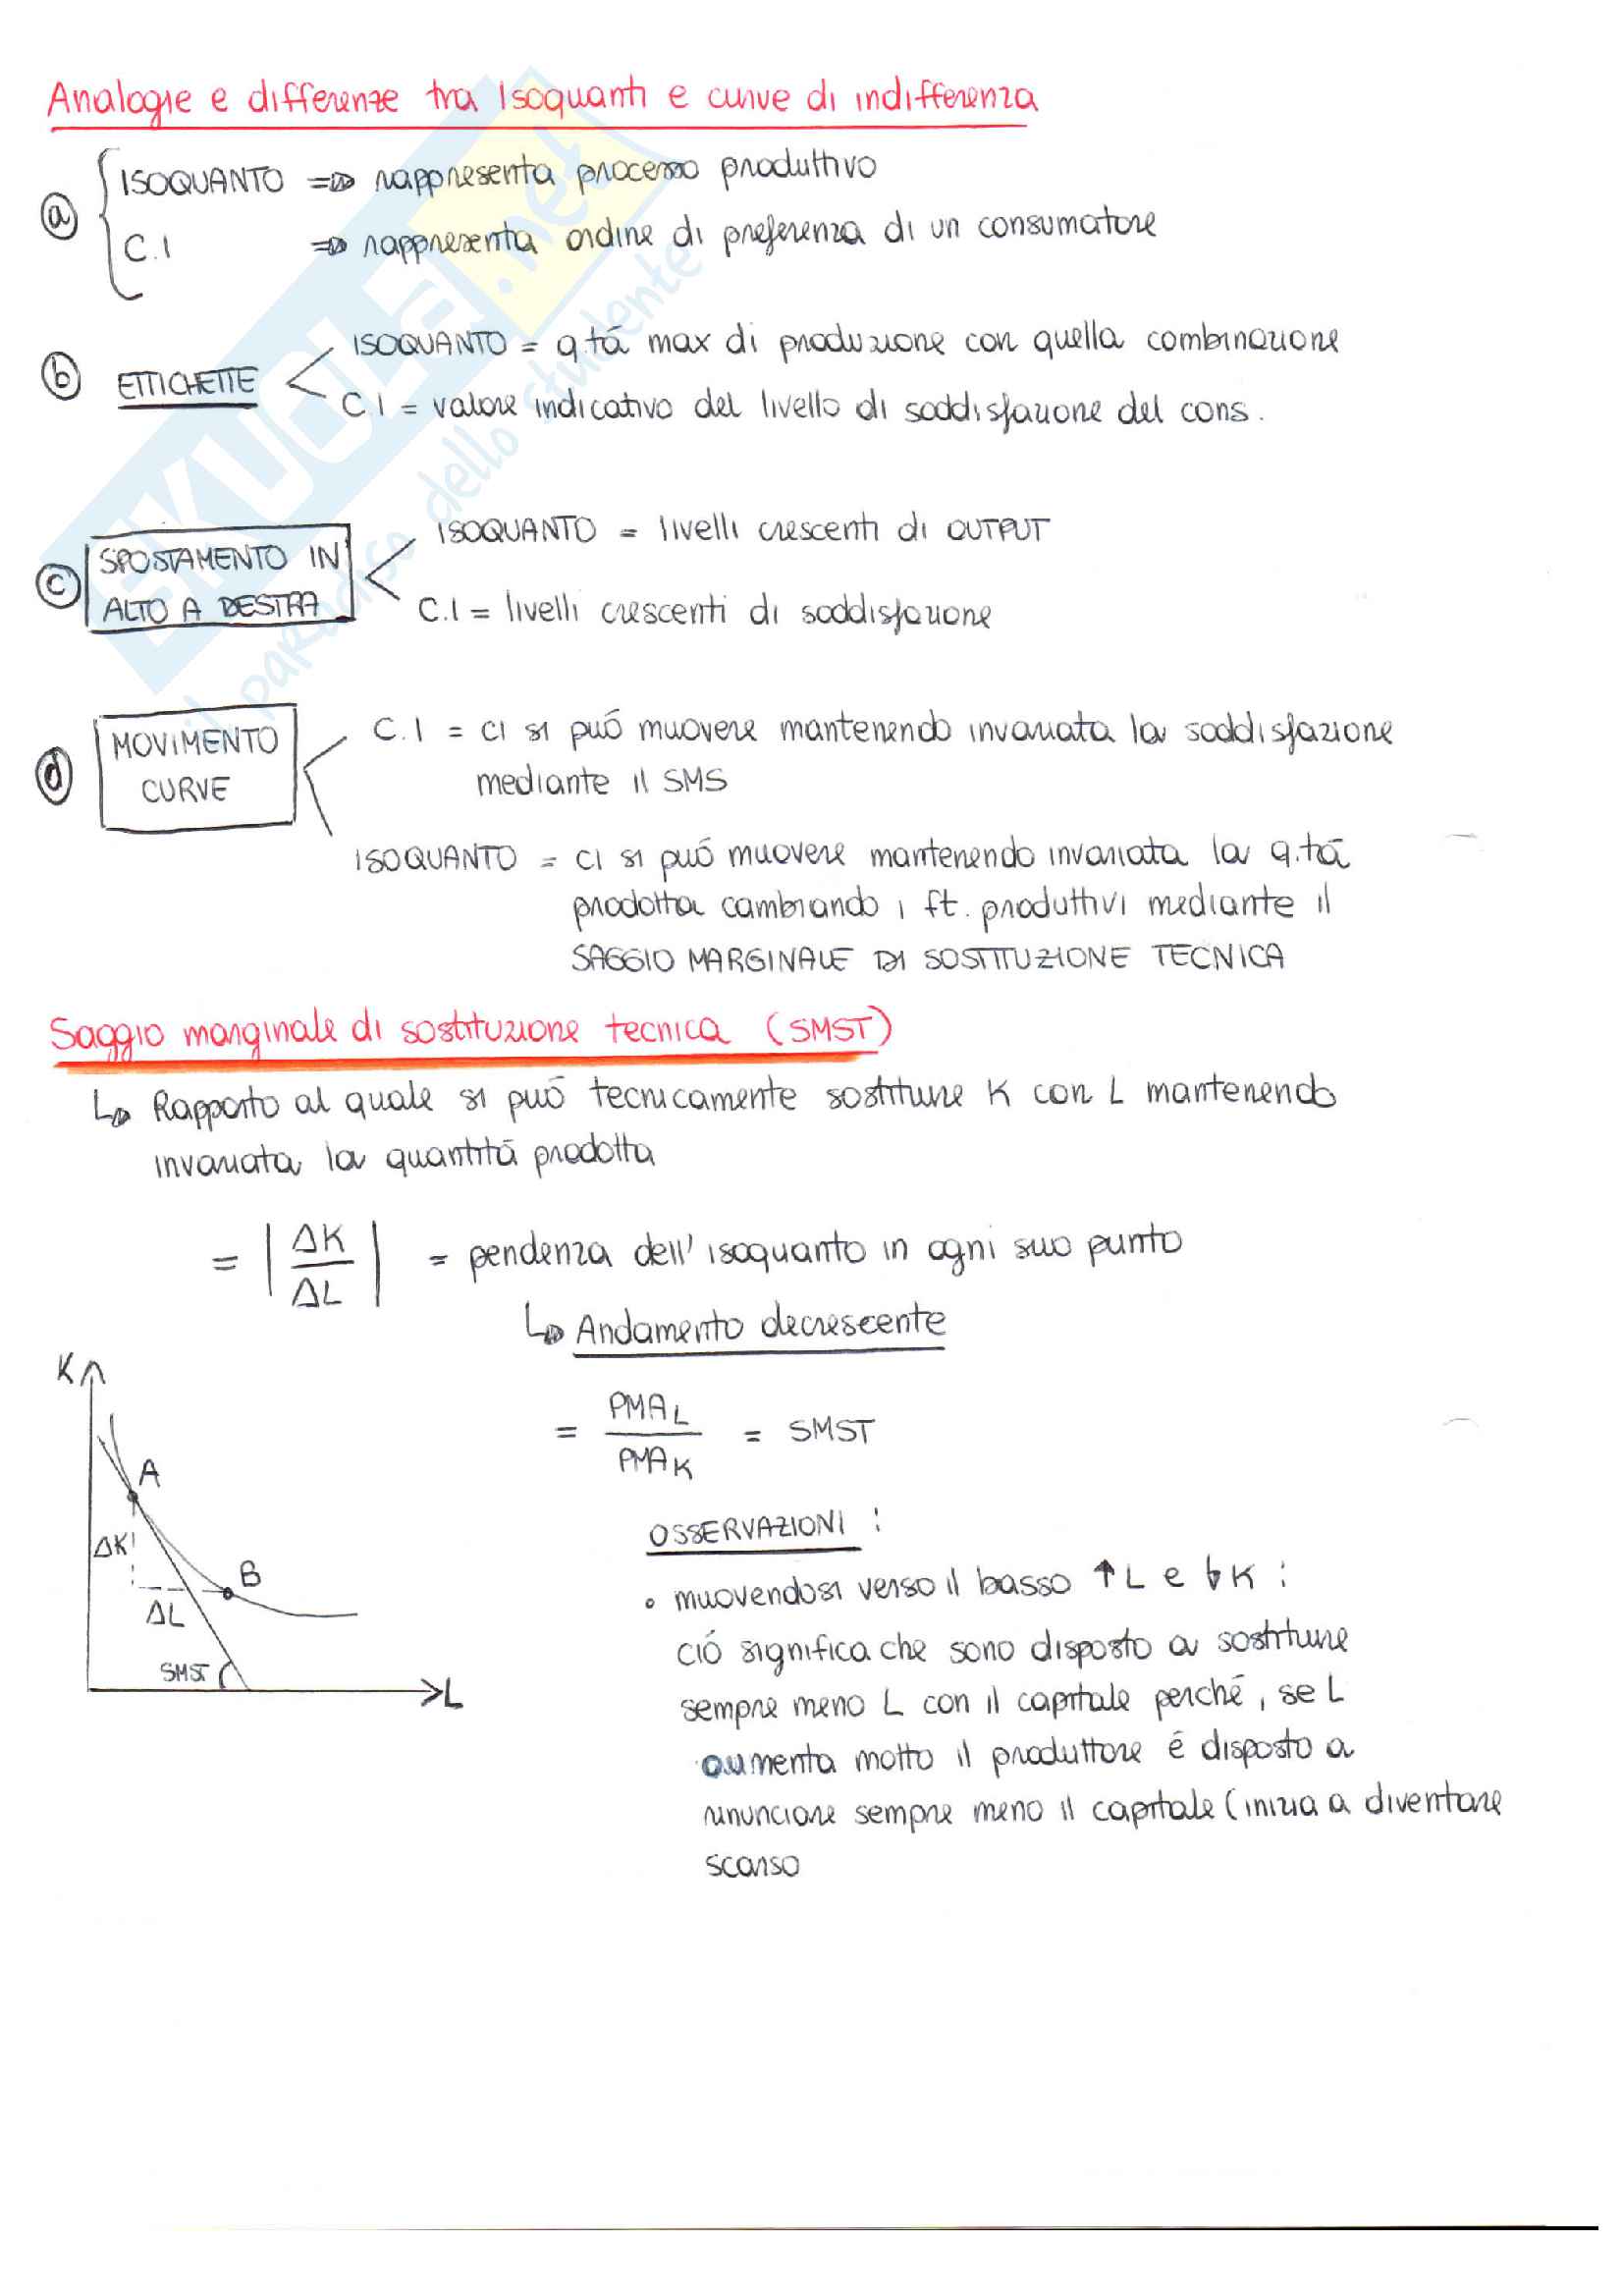 Analogie e differenze tra Isoquanti e curve di indifferenza
ⓐ ISOQUANTO => rappresenta processo produttivo
C.I => rappresenta ordine di preferenza di un consumatore
ⓑ ETTICHETTE ISOQUANTO = q.tá max di produzione con quella combinazione
C.I = valore indicativo del livello di soddisfazione del cons.
ⓒ SPOSTAMENTO IN ALTO A DESTRA
ISOQUANTO = livelli crescenti di OUTPUT
C.I = livelli crescenti di soddisfazione
ⓓ MOVIMENTO CURVE
C.I = ci si puó muovere mantenendo invariata la soddisfazione
mediante il SMS
ISOQUANTO = ci si puó muovere mantenendo invariata la q.tá
prodotta cambiando i ft. produttivi mediante il
SAGGIO MARGINALE DI SOSTITUZIONE TECNICA
Saggio marginale di sostituzione tecnica (SMST)
↳ Rapporto al quale si puó tecnicamente sostituire K con L mantenendo
invariata la quantitá prodotta
= | ΔK / ΔL | = pendenza dell' isoquanto in ogni suo punto
↳ Andamento decrescente
= PMA_L / PMA_K = SMST
K
A
ΔK
B
ΔL
SMST
L
OSSERVAZIONI :
• muovendosi verso il basso ↑L e ↓K :
ció significa che sono disposto a sostituire
sempre meno L con il capitale perché, se L
aumenta molto il produttore é disposto a
rinunciare sempre meno il capitale (inizia a diventare
scarso
SKUOLA.net
il paradiso dello studente